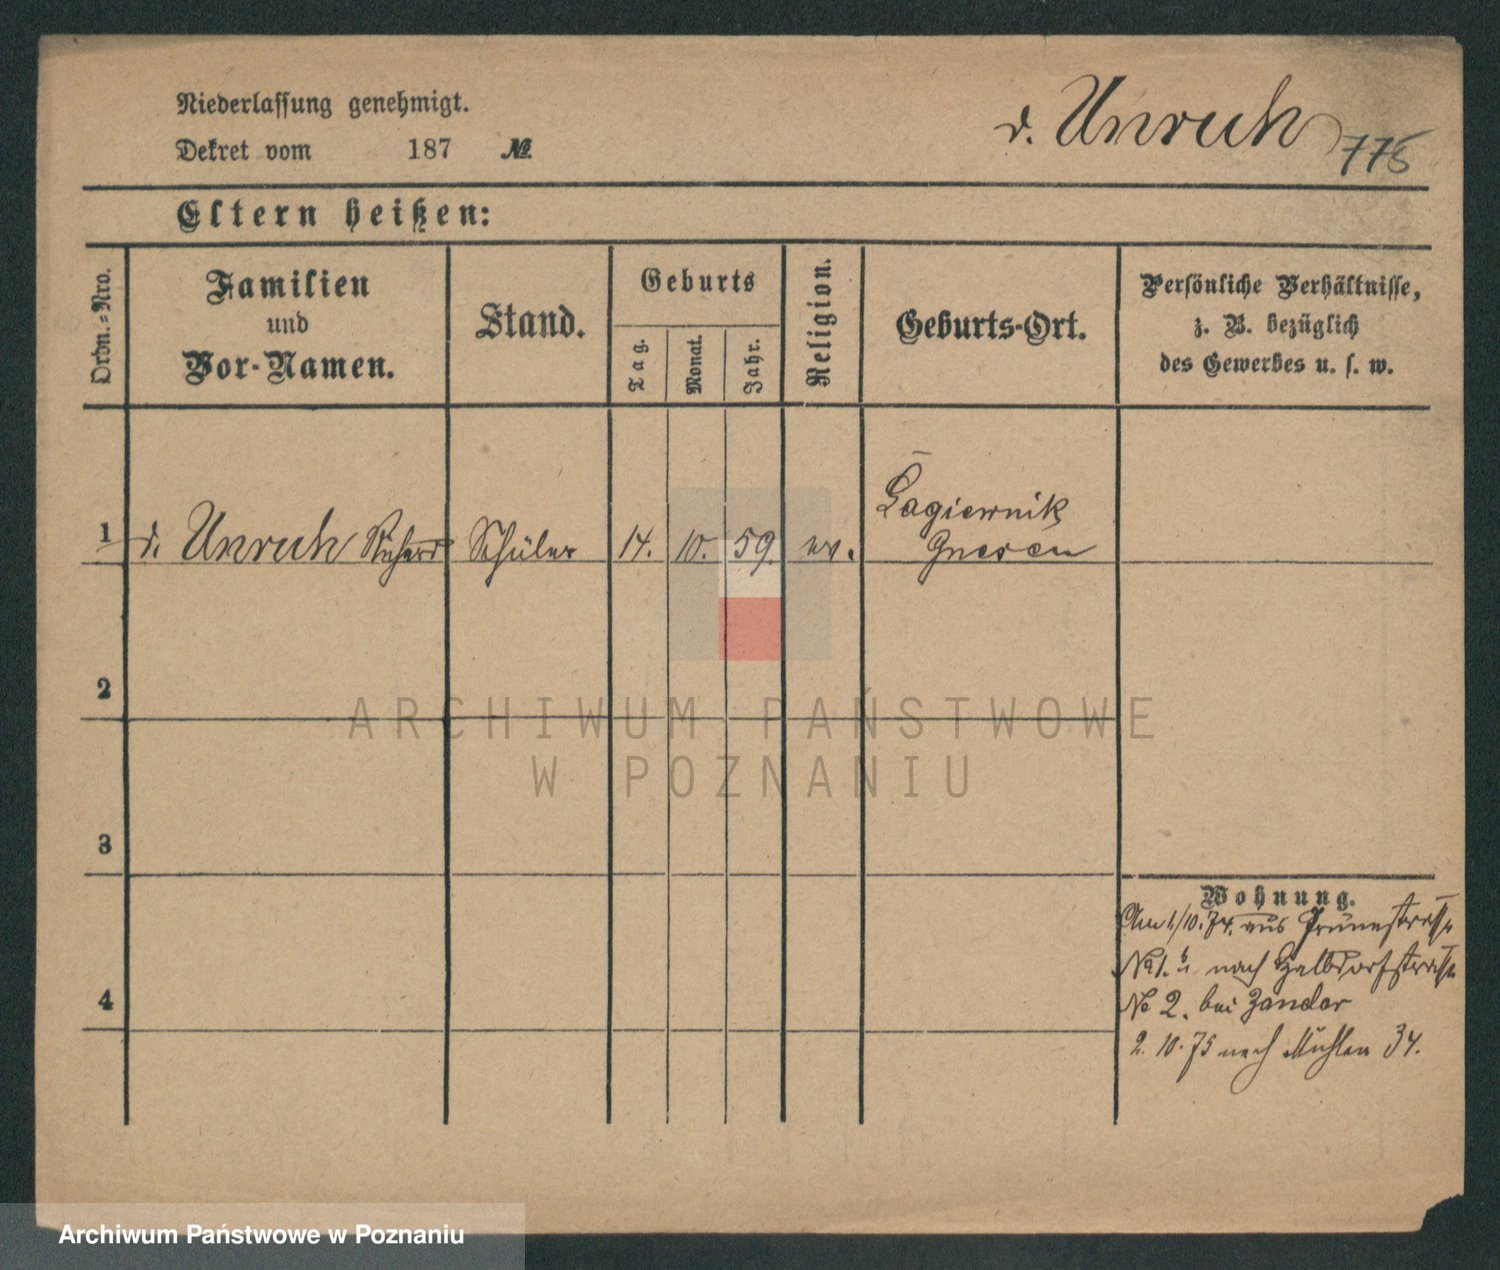 Niederlassung genehmigt.
v. Unruh
775
Dekret vom 187 №
Eltern heißen:
Ordn.-Nro.
Familien
und
Vor-Namen.
Stand.
Geburts
Tag.
Monat.
Jahr.
Religion.
Geburts-Ort.
Persönliche Verhältnisse,
z. B. bezüglich
des Gewerbes u. s. w.
1 v. Unruh Richard Schüler 14. 10. 59. ev. Lagiewnik
Gnesen
2
3
4
Wohnung.
Am 1/10. 74. aus Grünestrasse
No 1. nach Halbdorfstrasse
No 2. bei Zander
2. 10. 75 nach Mühlen 34.
ARCHIWUM PAŃSTWOWE
W POZNANIU
Archiwum Państwowe w Poznaniu